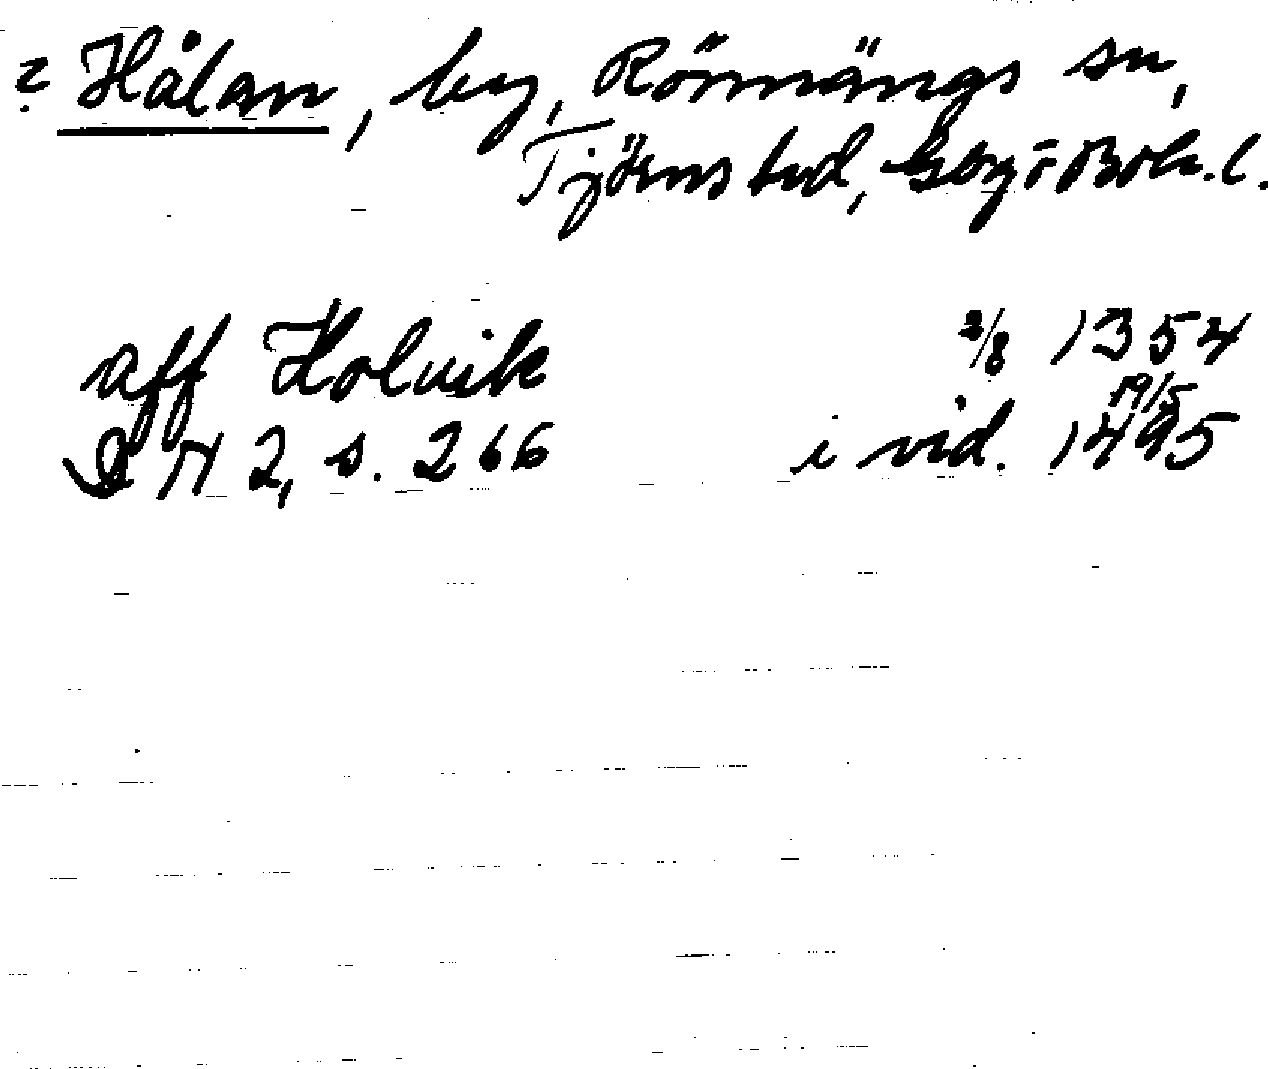 ? Hålan, by, Rönnängs sn,
Tjörns hd, Gbg. o Boh. l.
aff Holvik 2/8 1354
DN 2, s. 266 i vid. 19/5 1495